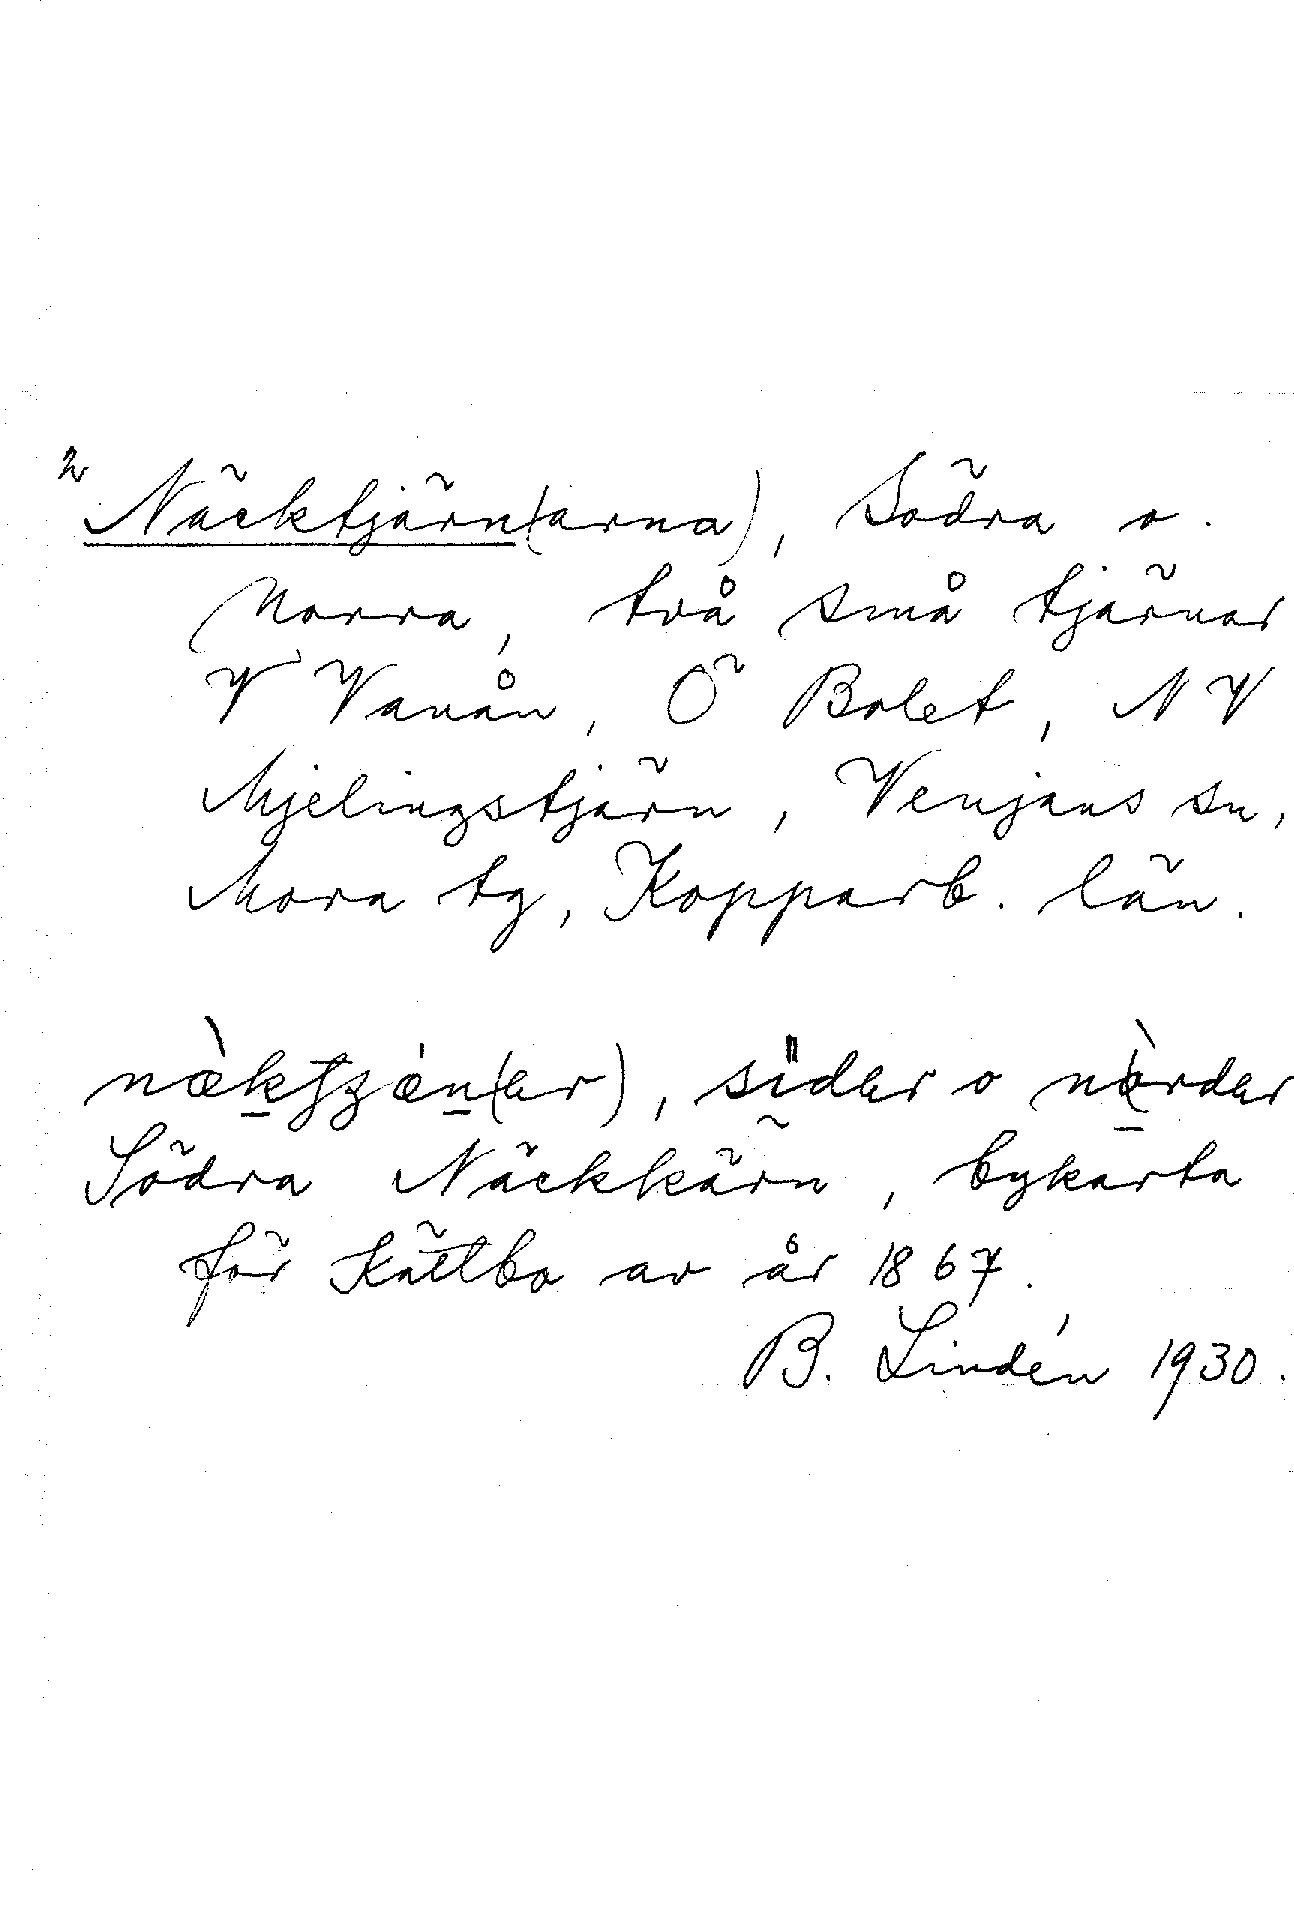 2 Näcktjärn(arna), Södra o.
Norra, två små tjärnar
V Vanån, Ö Bolet, NV
Mjelingstjärn, Venjans sn,
Mora tg, Kopparb. län.
Södra Näckkärn, bykarta
för Kättbo av år 1867.
B. Lindén 1930.